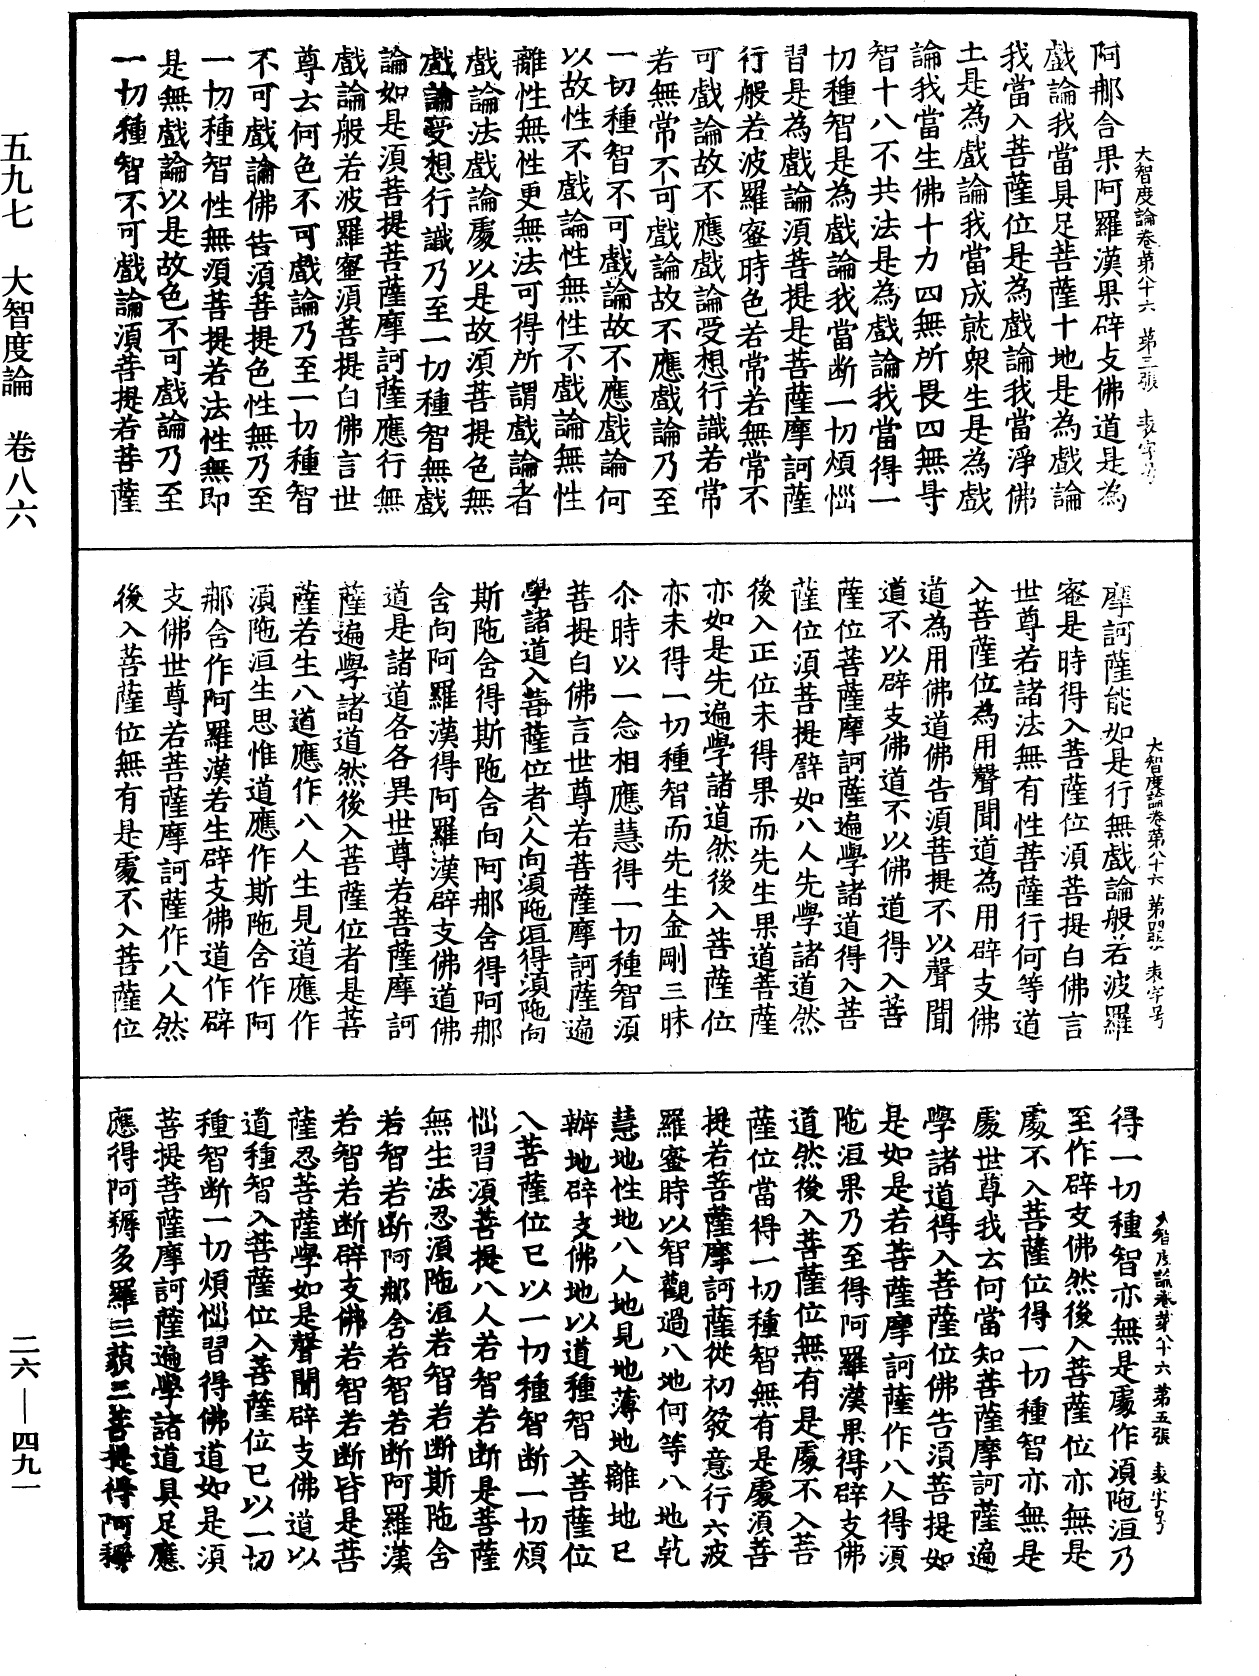 五九七　大智度論　卷八六
二六—四九一
大智度論卷第八十六　第三張　表字号
阿那含果阿羅漢果辟支佛道是為
戲論我當具足菩薩十地是為戲論
我當入菩薩位是為戲論我當淨佛
土是為戲論我當成就衆生是為戲
論我當生佛十力四無所畏四無㝵
智十八不共法是為戲論我當得一
切種智是為戲論我當断一切煩惱
習是為戲論須菩提是菩薩摩訶薩
行般若波羅蜜時色若常若無常不
可戲論故不應戲論受想行識若常
若無常不可戲論故不應戲論乃至
一切種智不可戲論故不應戲論何
以故性不戲論性無性不戲論無性
離性無性更無法可得所謂戲論者
戲論法戲論處以是故須菩提色無
戲論受想行識乃至一切種智無戲
論如是須菩提菩薩摩訶薩應行無
戲論般若波羅蜜須菩提白佛言世
尊云何色不可戲論乃至一切種智
不可戲論佛告須菩提色性無乃至
一切種智性無須菩提若法性無即
是無戲論以是故色不可戲論乃至
一切種智不可戲論須菩提若菩薩
大智度論卷第八十六　第四張　表字号
摩訶薩能如是行無戲論般若波羅
蜜是時得入菩薩位須菩提白佛言
世尊若諸法無有性菩薩行何等道
入菩薩位為用聲聞道為用辟支佛
道為用佛道佛告須菩提不以聲聞
道不以辟支佛道不以佛道得入菩
薩位菩薩摩訶薩遍學諸道得入菩
薩位須菩提譬如八人先學諸道然
後入正位未得果而先生果道菩薩
亦如是先遍學諸道然後入菩薩位
亦未得一切種智而先生金剛三昧
尒時以一念相應慧得一切種智須
菩提白佛言世尊若菩薩摩訶薩遍
學諸道入菩薩位者八人向須陁洹得須陁向
斯陁含得斯陁含向阿那含得阿那
含向阿羅漢得阿羅漢辟支佛道佛
道是諸道各各異世尊若菩薩摩訶
薩遍學諸道然後入菩薩位者是菩
薩若生八道應作八人生見道應作
須陁洹生思惟道應作斯陁含作阿
那含作阿羅漢若生辟支佛道作辟
支佛世尊若菩薩摩訶薩作八人然
後入菩薩位無有是處不入菩薩位
大智度論卷第八十六　第五張　表字号
得一切種智亦無是處作須陁洹乃
至作辟支佛然後入菩薩位亦無是
處不入菩薩位得一切種智亦無是
處世尊我云何當知菩薩摩訶薩遍
學諸道得入菩薩位佛告須菩提如
是如是若菩薩摩訶薩作八人得須
陁洹果乃至得阿羅漢果得辟支佛
道然後入菩薩位無有是處不入菩
薩位當得一切種智無有是處須菩
提若菩薩摩訶薩從初發意行六波
羅蜜時以智觀過八地何等八地乹
慧地性地八人地見地薄地離地已
辦地辟支佛地以道種智入菩薩位
入菩薩位已以一切種智断一切煩
惱習須菩提八人若智若断是菩薩
無生法忍須陁洹若智若断斯陁含
若智若断阿那含若智若断阿羅漢
若智若断辟支佛若智若断皆是菩
薩忍菩薩學如是聲聞辟支佛道以
道種智入菩薩位入菩薩位已以一切
種智断一切煩惱習得佛道如是須
菩提菩薩摩訶薩遍學諸道具足應
應得阿耨多羅三藐三菩提得阿耨